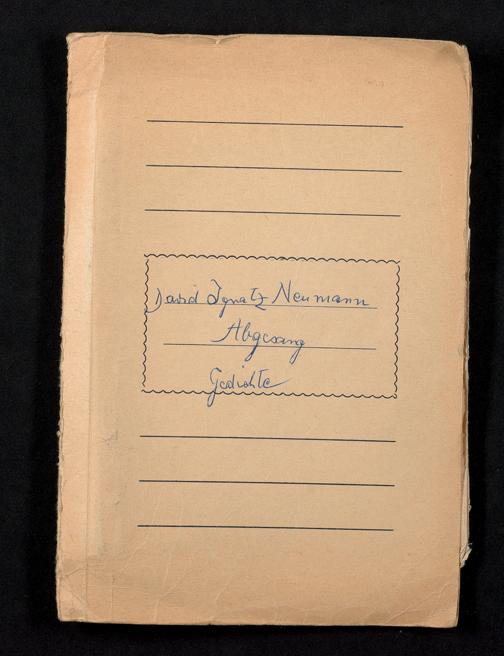 David Ignatz Neumann
Abgesang
Gedichte